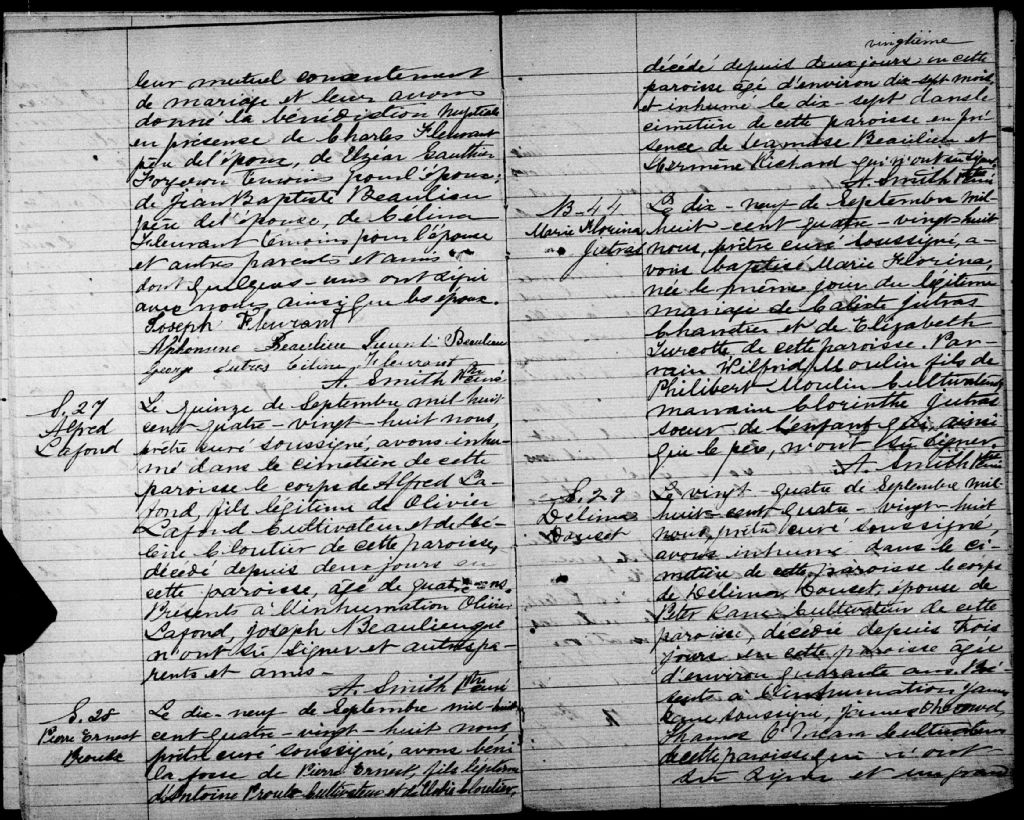 leur mutuel consentement
de mariage et leur avons
donné la bénédiction nuptiale
en présense de Charles Fleurant
père de l'époux, de Elzéar Gauthier
Forgeron témoins pour l'époux;
de Jean Baptiste Beaulieu
père de l'épouse, de Célina
Fleurant témoins pour l'épouse
et autres parents et amis
dont quelques-uns ont signé
avec nous ainsi que les époux.
Joseph Fleurant
Alphonsine Beaulieu Beaulieu
George Jutras Céline Fleurant
A. Smith Ptre curé
S. 27
Alfred
Lafond
Le quinze de Septembre mil huit
cent quatre-vingt-huit nous,
prêtre curé soussigné, avons inhu-
mé dans le cimetière de cette
paroisse le corps de Alfred La-
fond, fils légitime de Olivier
Lafond Cultivateur et de Cé-
line Cloutier de cette paroisse,
décédé depuis deux jours en
cette paroisse, âgé de quatre ans.
Présents à l'inhumation Olivier
Lafond, Joseph Beaulieu qui
n'ont su signer et autres pa-
rents et amis.
A. Smith Ptre curé
S. 28
Pierre Ernest
Proulx
Le dix-neuf de Septembre mil huit
cent quatre-vingt-huit nous
prêtre curé soussigné, avons béni
la fosse de Pierre Ernest, fils légitime
d'Antoine Proulx Cultivateur et de Cloutier,
vingtième
décédé depuis deux jours en cette
paroisse âgé d'environ dix-sept mois
et inhumé le dix-sept dans le
cimetière de cette paroisse en pré-
sence de Beaulieu et
Richard qui n'ont su signer
A. Smith Ptre curé
B-44
Marie Florina
Jutras
Le dix-neuf de Septembre mil-
huit-cent quatre-vingt huit
nous, prêtre curé soussigné, a-
vons baptisé Marie Florina,
née le même jour du légitime
mariage de Calixte Jutras
Charretier et de Elizabeth
Turcotte de cette paroisse. Par-
rain Wilfrid Moulin fils de
Philibert Moulin Cultivateur,
marraine Clorinthe Jutras
soeur de l'enfant qui ainsi
que le père, n'ont su signer.
A. Smith Ptre curé
S. 29
Délima
Douset
Le vingt-quatre de Septembre mil
huit-cent quatre-vingt-huit
nous, prêtre curé soussigné,
avons inhumé dans le ci-
metière de cette paroisse le corps
de Délima Douset, épouse de
Peter Kane Cultivateur de cette
paroisse, décédée depuis trois
jours en cette paroisse âgée
d'environ quarante ans. Pré-
sents à l'inhumation James
Kane soussigné, James
Thomas Cultivateurs
de cette paroisse qui n'ont
su signer et un grand